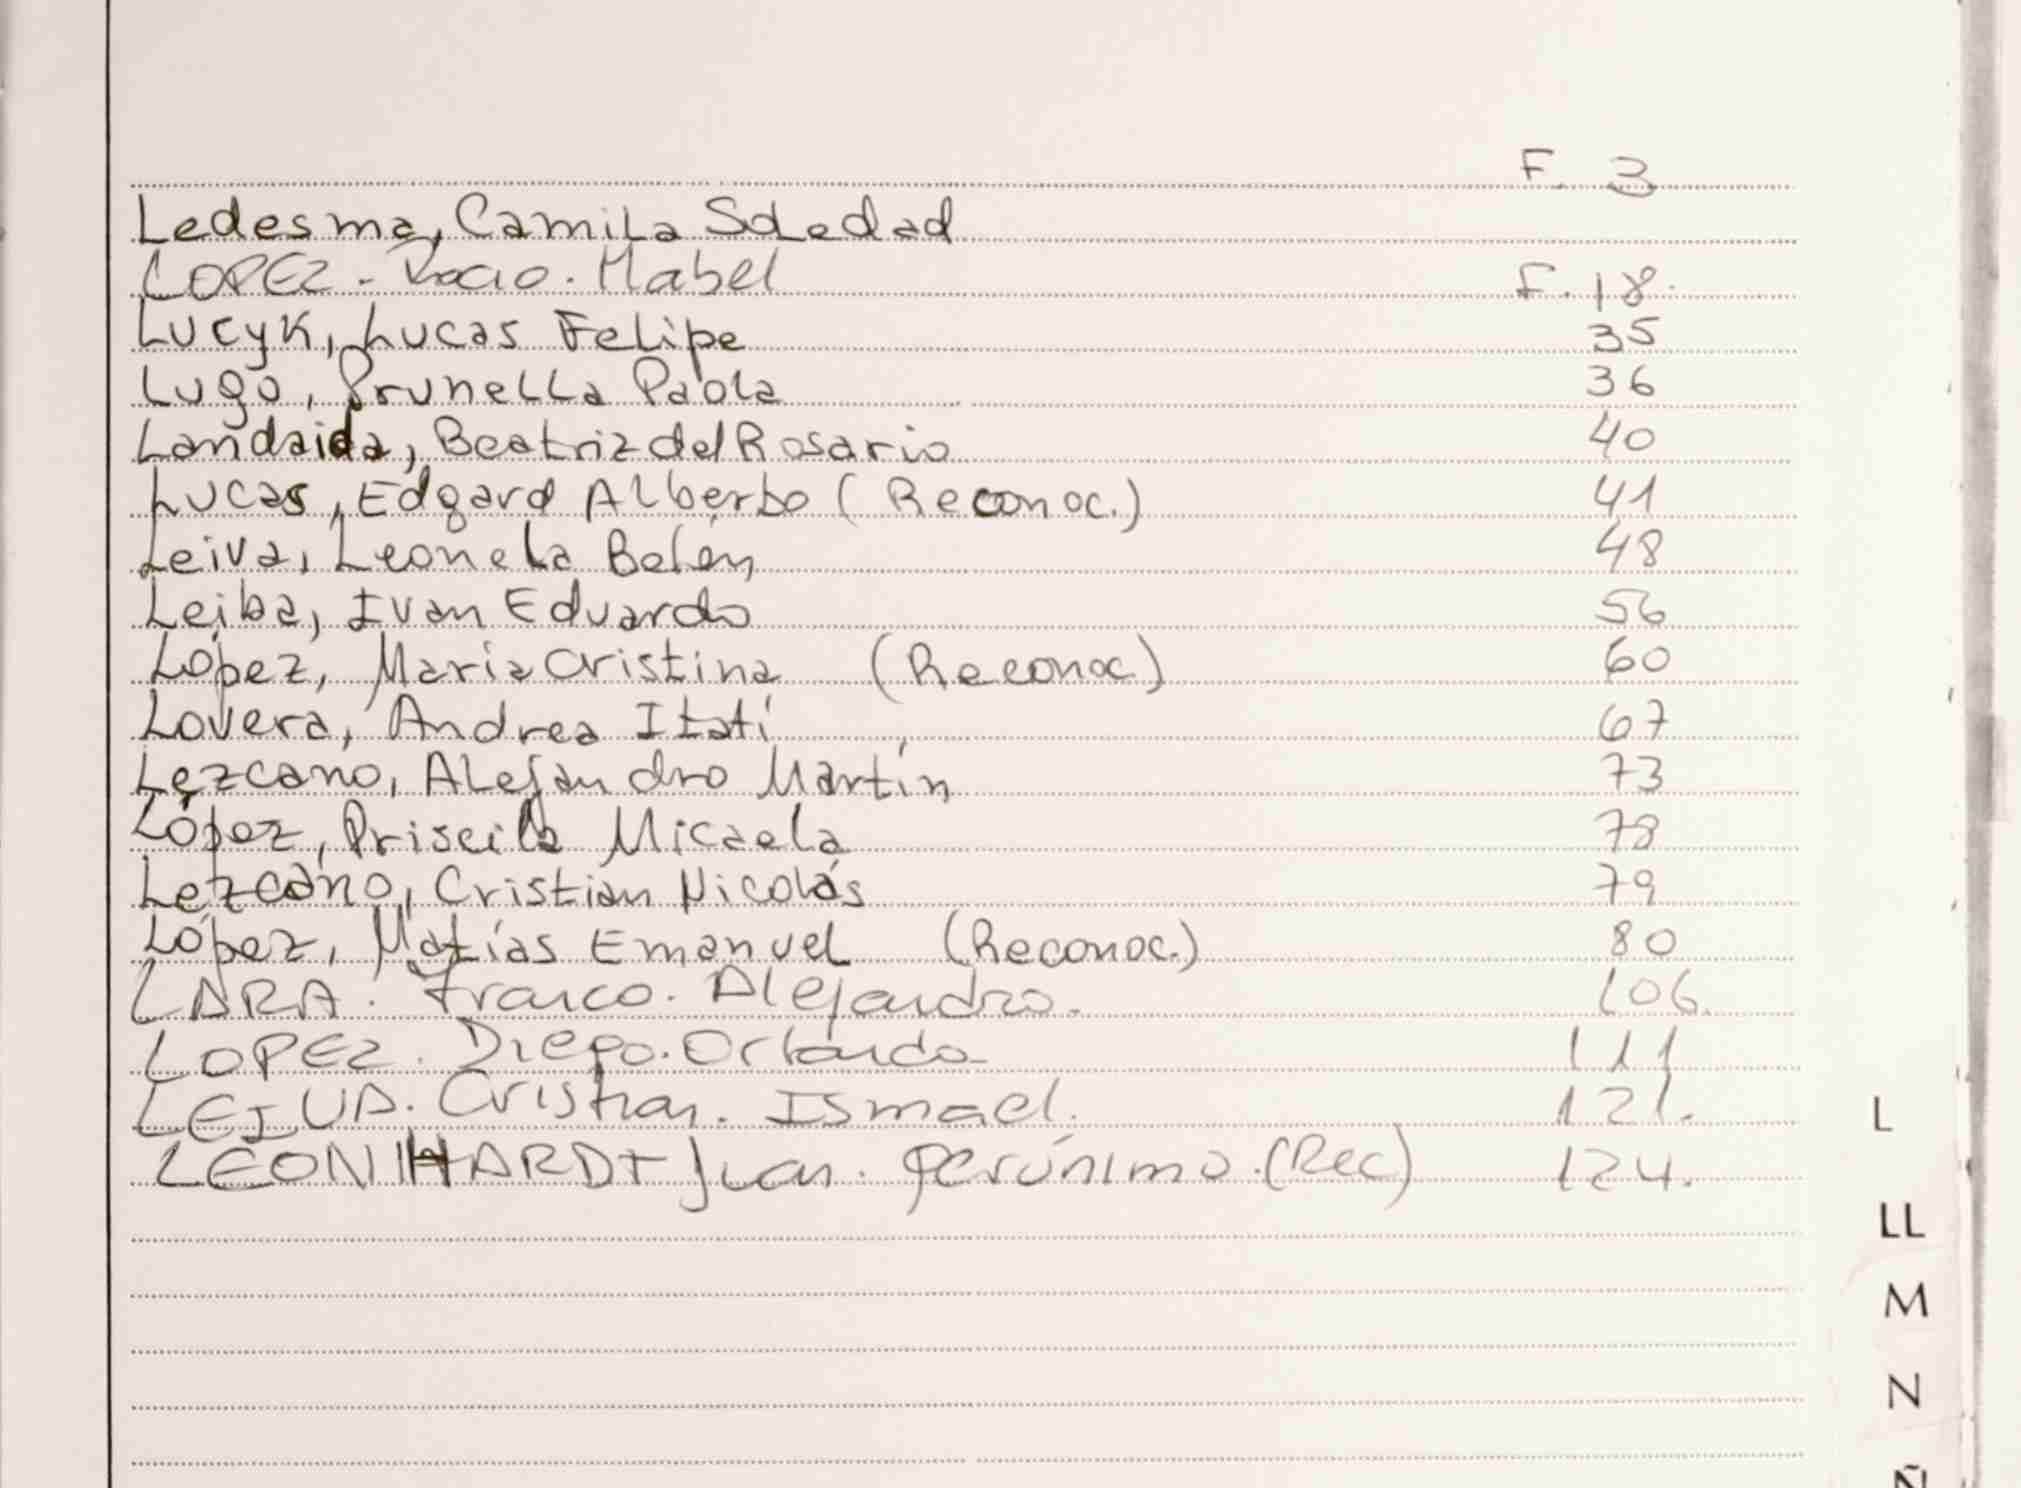 F. 3
Ledesma, Camila Soledad
LOPEZ - Rocio. Mabel F. 18.
Lucyk, Lucas Felipe 35
Lugo, Prunella Paola 36
Landaida, Beatriz del Rosario 40
Lucas, Edgard Alberto (Reconoc.) 41
Leiva, Leonela Belén 48
Leiba, Ivan Eduardo 56
López, Maria Cristina (Reconoc.) 60
Lovera, Andrea Itatí 67
Lezcano, Alejandro Martín 73
López, Priscila Micaela 78
Lezcano, Cristian Nicolás 79
López, Matías Emanuel (Reconoc.) 80
LARA. Franco. Alejandro. 106.
LOPEZ. Diego. Orlando 111
LEIVA. Cristian. Ismael. 121.
L
LEONHARDT Juan. Gerónimo. (Rec) 124.
LL
M
N
Ñ